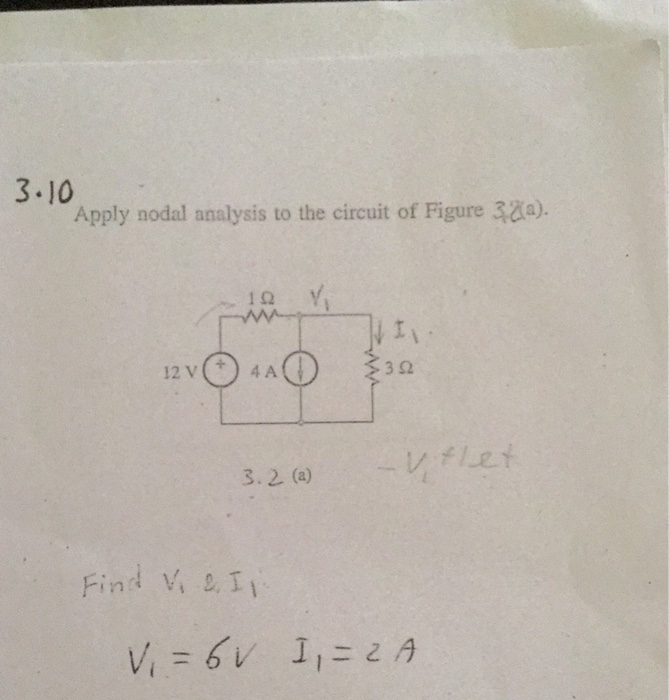 3.10
Apply nodal analysis to the circuit of Figure 3.2(a).
1 Ω V₁
I₁
12 V + 4 A 3 Ω
3.2 (a)
Find V₁ & I₁
V₁ = 6V I₁ = 2 A